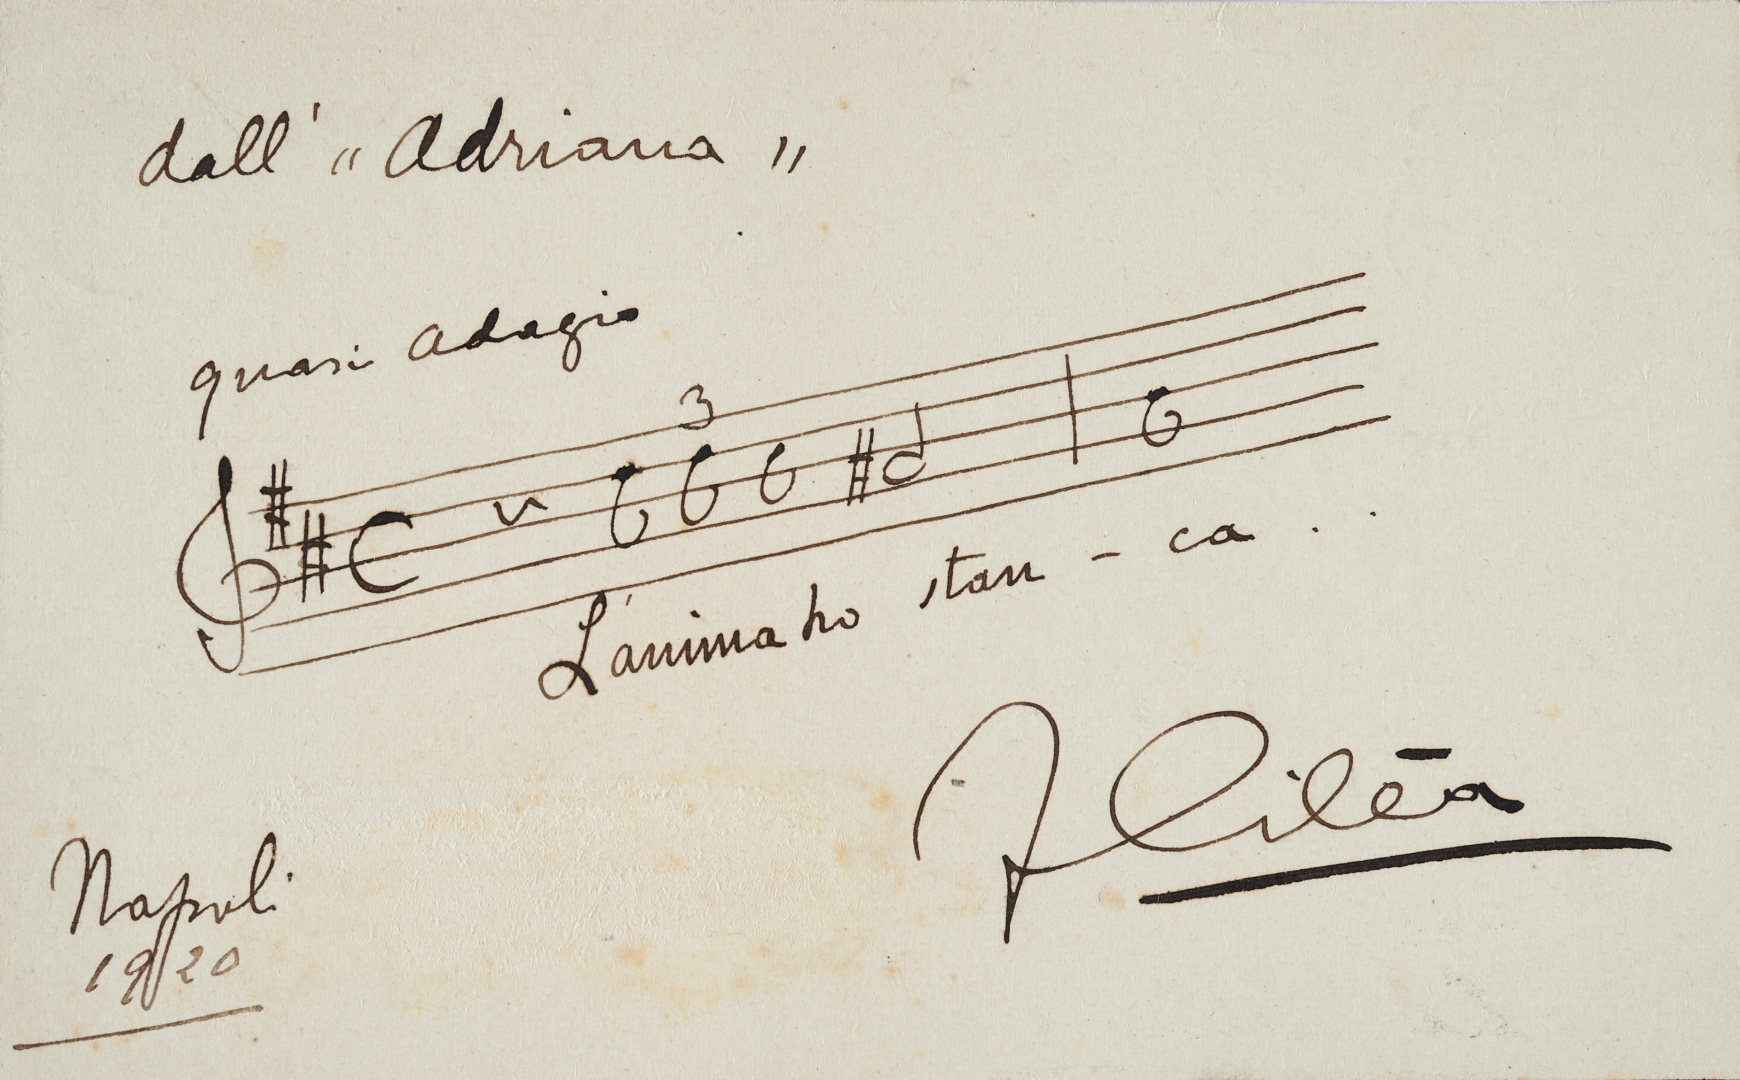 dall' „ Adriana „
quasi adagio
3
L'anima ho stan - ca . .
F Cilēa
Napoli
1920